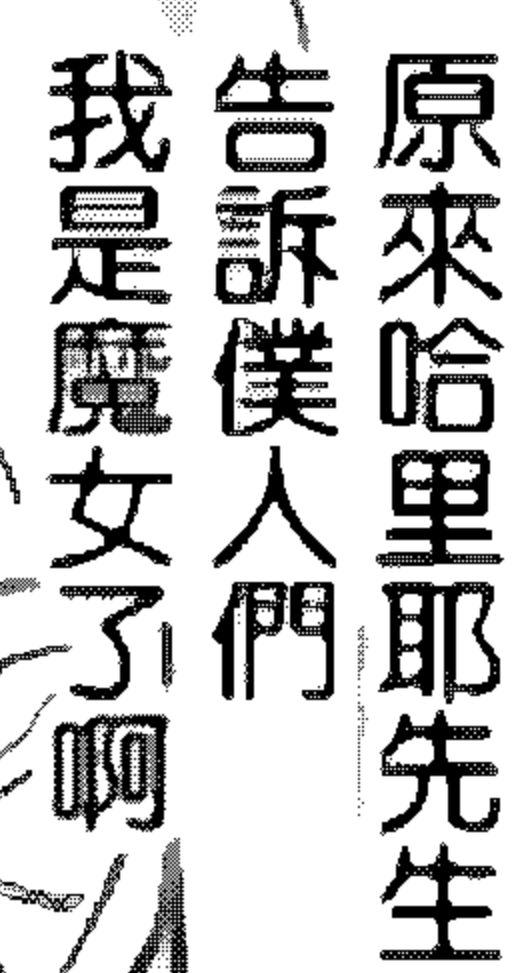 原來哈里耶先生
告訴僕人們
我是魔女了啊